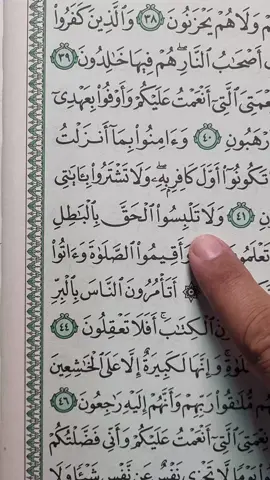 وَلَا هُمْ يَحْزَنُونَ ٣٨ وَالَّذِينَ كَفَرُوا
أَصْحَابُ النَّارِ هُمْ فِيهَا خَالِدُونَ ٣٩
الَّتِي أَنْعَمْتُ عَلَيْكُمْ وَأَوْفُوا بِعَهْدِي
٤٠ وَءَامِنُوا بِمَا أَنزَلْتُ
تَكُونُوا أَوَّلَ كَافِرٍ بِهِ وَلَا تَشْتَرُوا بِـَٔايَاتِي
٤١ وَلَا تَلْبِسُوا الْحَقَّ بِالْبَاطِلِ
وَأَقِيمُوا الصَّلَوٰةَ وَءَاتُوا
أَتَأْمُرُونَ النَّاسَ بِالْبِرِّ
الْكِتَابَ أَفَلَا تَعْقِلُونَ ٤٤
وَإِنَّهَا لَكَبِيرَةٌ إِلَّا عَلَى الْخَاشِعِينَ
مُلَاقُوا رَبِّهِمْ وَأَنَّهُمْ إِلَيْهِ رَاجِعُونَ ٤٦
الَّتِي أَنْعَمْتُ عَلَيْكُمْ وَأَنِّي فَضَّلْتُكُمْ
لَا تَجْزِي نَفْسٌ عَن نَّفْسٍ شَيْئًا وَلَا